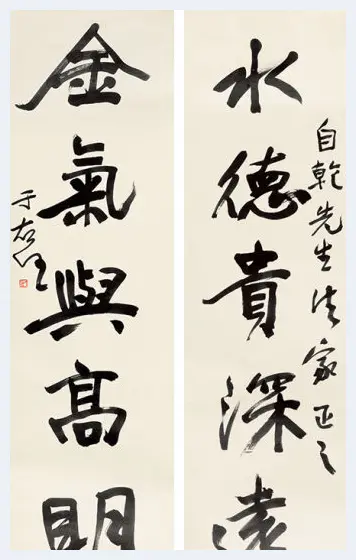 自乾先生法家正之
水德貴深遠
金氣與髙明
于右任